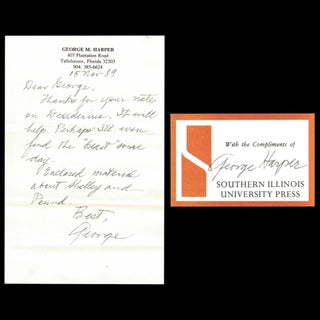 GEORGE M. HARPER
407 Plantation Road
Tallahassee, Florida 32303
904: 385-6624
15 Nov 89
Dear George,
Thanks for your note
on Desiderius. It will
help. Perhaps I'll even
find the "East" some
day.
Enclosed material
about Shelley and
Pound.
Best,
George
With the Compliments of
George Harper
SOUTHERN ILLINOIS
UNIVERSITY PRESS